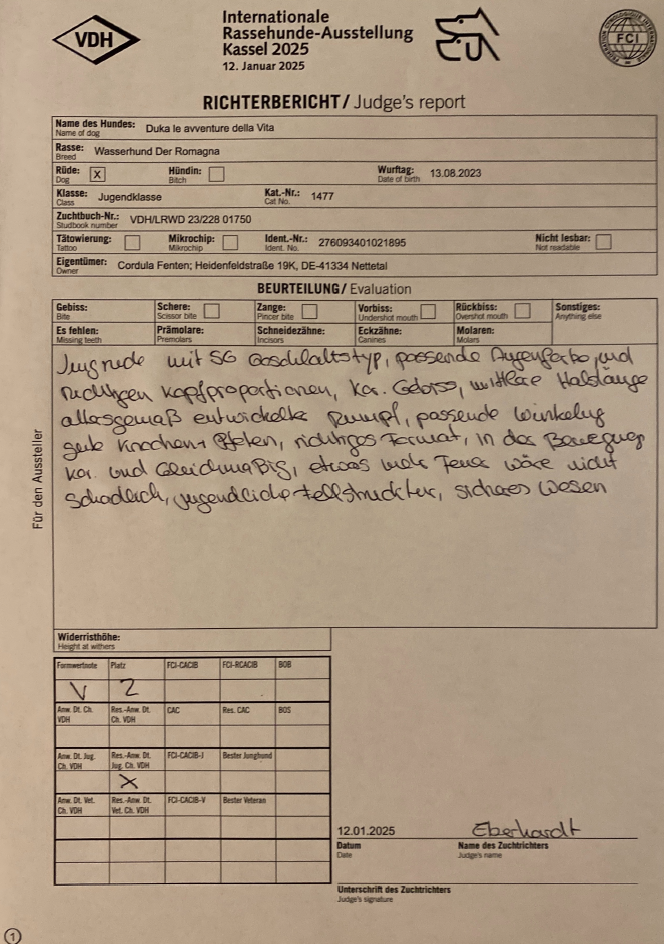 VDH
Internationale
Rassehunde-Ausstellung
Kassel 2025
12. Januar 2025
FCI
RICHTERBERICHT / Judge's report
Name des Hundes: Duka le avventure della Vita
Name of dog
Rasse: Wasserhund Der Romagna
Breed
Rüde: X Hündin: Wurftag: 13.08.2023
Dog Bitch Date of birth
Klasse: Jugendklasse Kat.-Nr.: 1477
Class Cat No.
Zuchtbuch-Nr.: VDH/LRWD 23/228 01750
Studbook number
Tätowierung: Mikrochip: Ident.-Nr.: 276093401021895 Nicht lesbar:
Tattoo Mikrochip Ident. No. Not readable
Eigentümer: Cordula Fenten; Heidenfeldstraße 19K, DE-41334 Nettetal
Owner
BEURTEILUNG / Evaluation
Gebiss: Schere: Zange: Vorbiss: Rückbiss: Sonstiges:
Bite Scissor bite Pincer bite Undershot mouth Overshot mouth Anything else
Es fehlen: Prämolare: Schneidezähne: Eckzähne: Molaren:
Missing teeth Premolars Incisors Canines Molars
Jungrüde mit SG Geschlechtstyp, passende Augenfarbe, und
richtigen Kopfproportionen, kor. Gebiss, mittlere Halslänge
altersgemäß entwickelter Rumpf, passende Winkelung
gute Knochen + Pfoten, richtiges Format, in der Bewegung
kor. und Gleichmäßig, etwas mehr Feuer wäre nicht
Schädlich, jugendliche Fellstruktur, sicheres Wesen
Für den Aussteller
Widerristhöhe:
Height at withers
Formwertnote Platz FCI-CACIB FCI-RCACIB BOB
V 2
Anw. Dt. Ch. VDH Res.-Anw. Dt. Ch. VDH CAC Res. CAC BOS
Anw. Dt. Jug. Ch. VDH Res.-Anw. Dt. Jug. Ch. VDH FCI-CACIB-J Bester Junghund
X
Anw. Dt. Vet. Ch. VDH Res.-Anw. Dt. Vet. Ch. VDH FCI-CACIB-V Bester Veteran
12.01.2025 Eberhardt
Datum Name des Zuchtrichters
Date Judge's name
Unterschrift des Zuchtrichters
Judge's signature
1